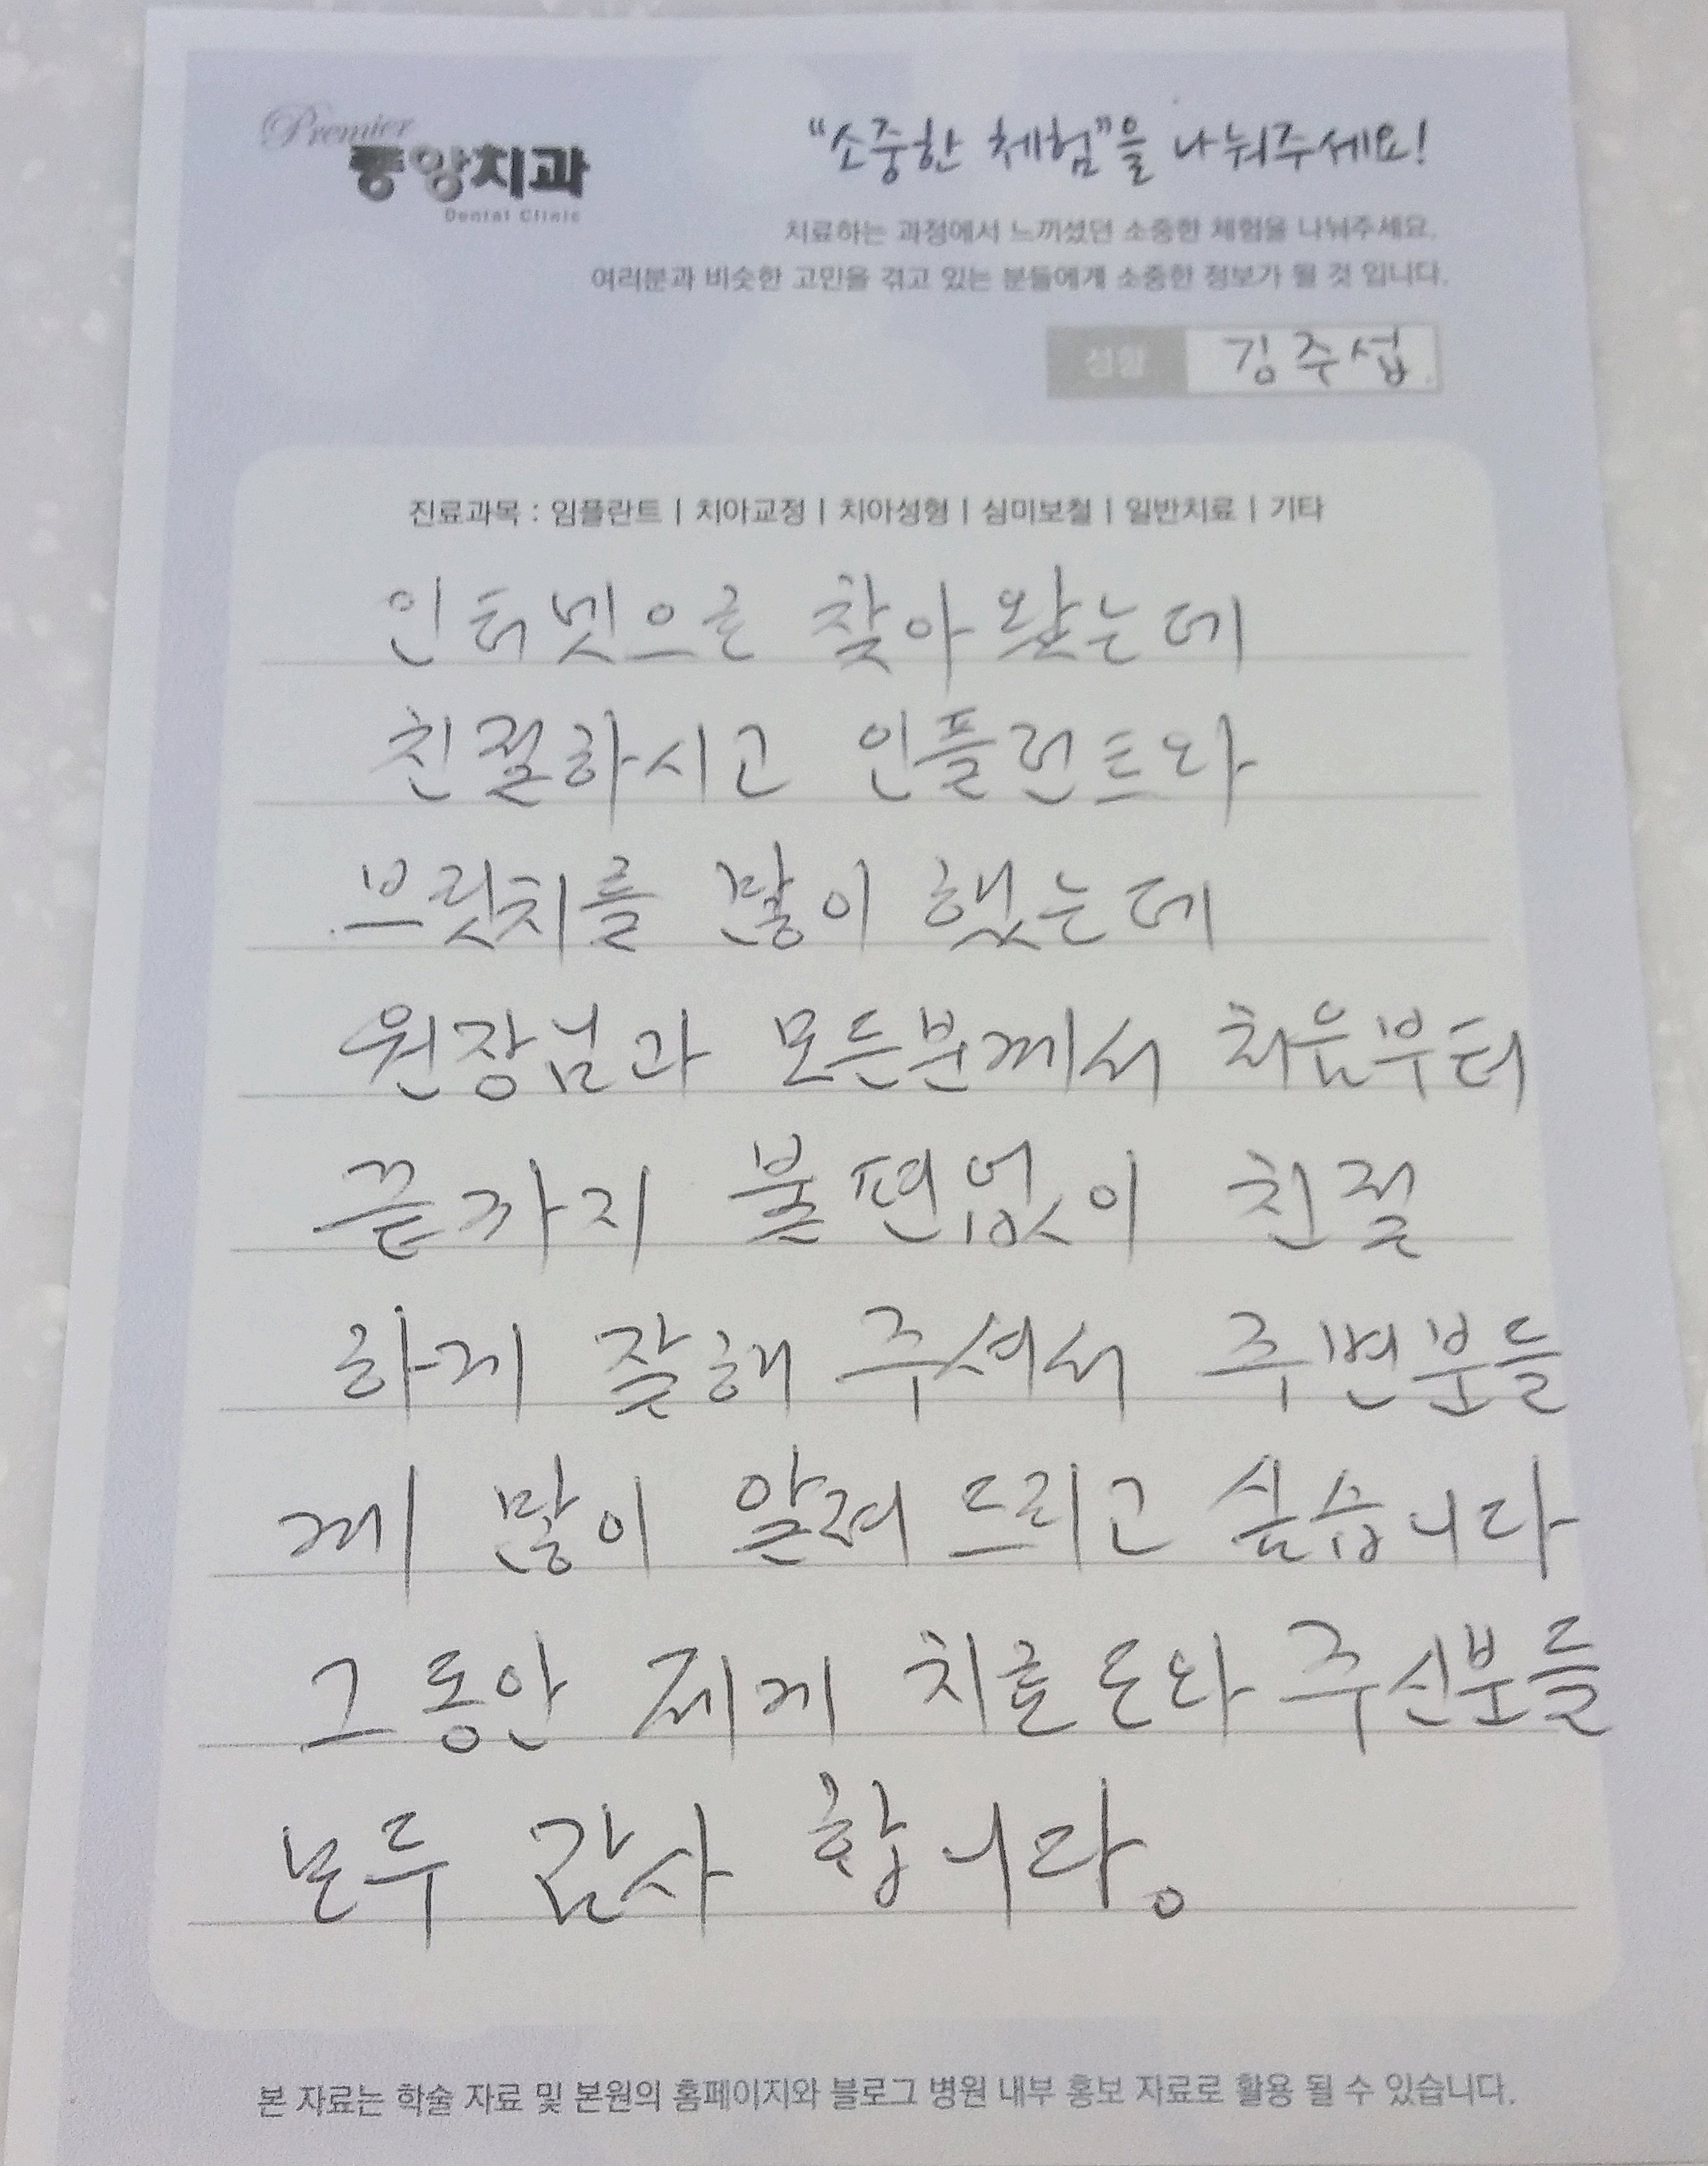 Premier
중앙치과
Dental Clinic
"소중한 체험"을 나눠주세요!
치료하는 과정에서 느끼셨던 소중한 체험을 나눠주세요.
여러분과 비슷한 고민을 겪고 있는 분들에게 소중한 정보가 될 것 입니다.
성함 김주섭
진료과목 : 임플란트 | 치아교정 | 치아성형 | 심미보철 | 일반치료 | 기타
인터넷으로 찾아왔는데
친절하시고 인플런트와
브릿치를 많이 했는데
원장님과 모든분께서 처음부터
끝까지 불편없이 친절
하게 잘해 주셔서 주변분들
께 많이 알려 드리고 싶습니다
그동안 제게 치료 도와 주신분들
모두 감사 합니다.
본 자료는 학술 자료 및 본원의 홈페이지와 블로그 병원 내부 홍보 자료로 활용 될 수 있습니다.